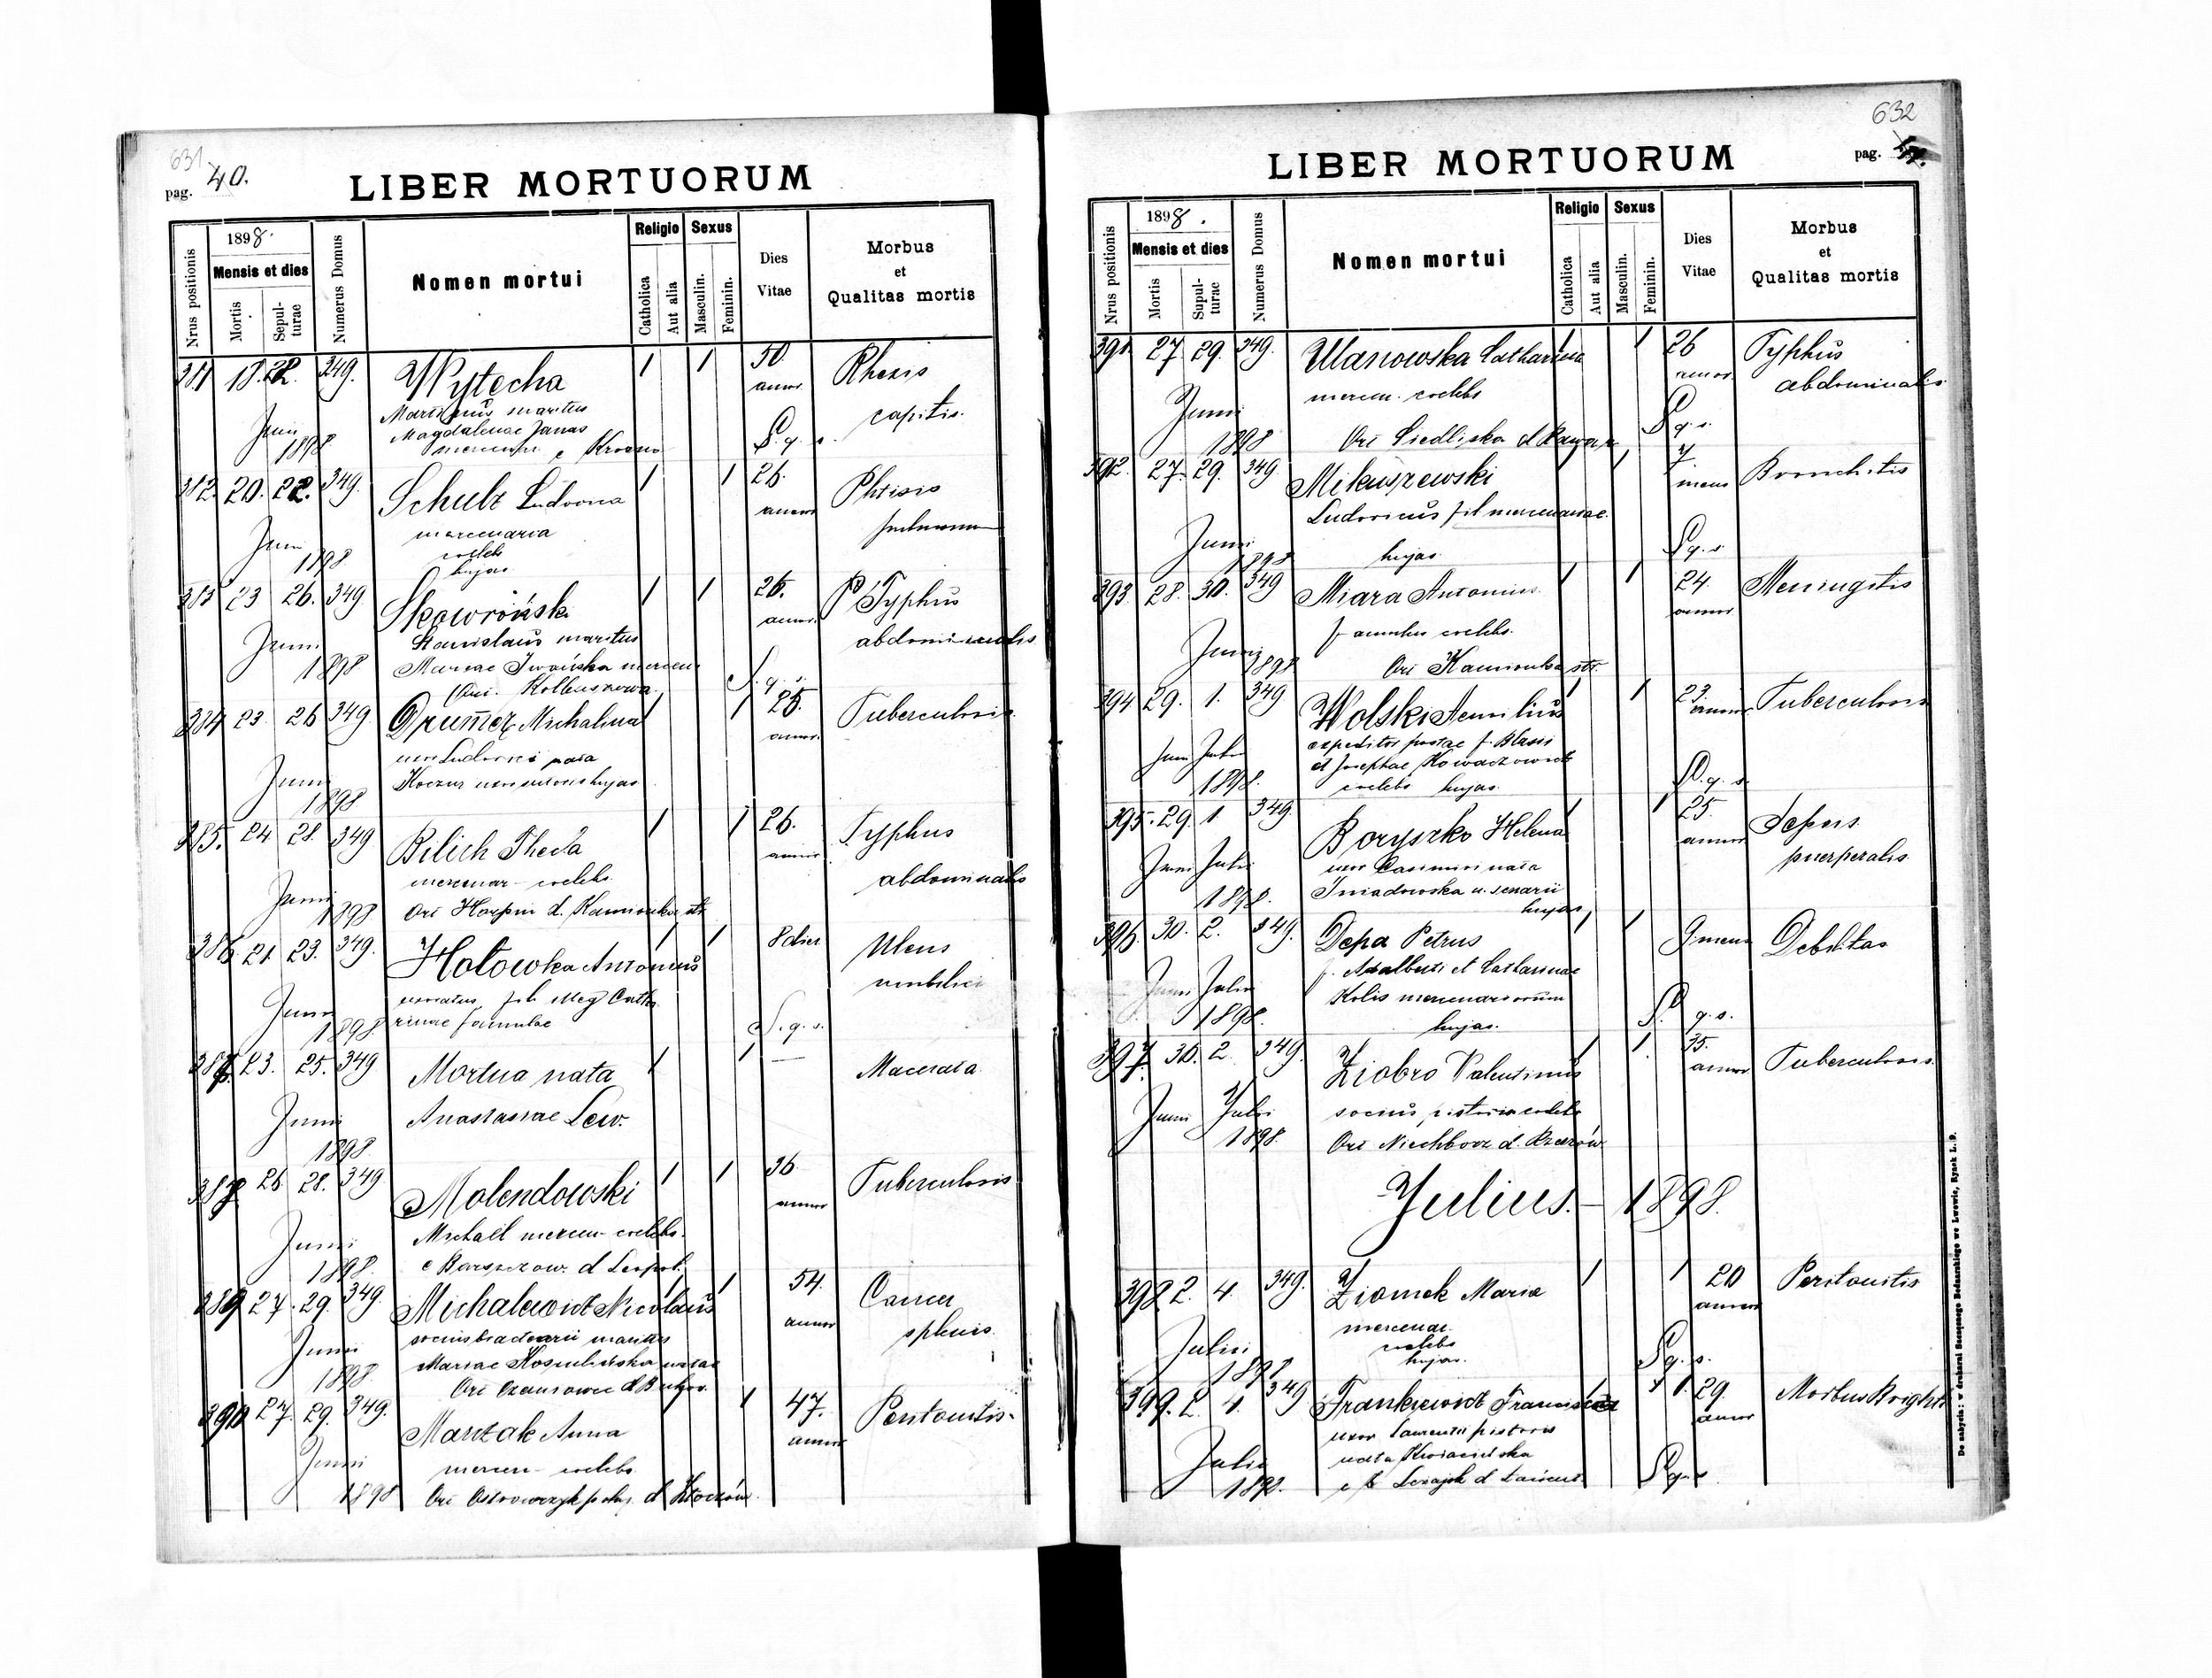 631
pag. 40.
LIBER MORTUORUM
Nrus positionis
1898.
Mensis et dies
Mortis
Sepul-
turae
Numerus Domus
Nomen mortui
Religio
Catholica
Aut alia
Sexus
Masculin.
Feminin.
Dies
Vitae
Morbus
et
Qualitas mortis
381 18. 22. 349. Wytecha 1 1 50 Rhexis
maritus annor. capitis.
Magdalenae Janas
Juni 1898 S. q. s.
382. 20. 22. 349. Schulz Ludovica 1 1 26. Phtisis
mercenaria annor
Juni coelebs
1898 hujas
383 23 26. 349 Skowroński 1 1 26. Typhus
Stanislaus maritus annor. abdominalis
Junii 1898 Mariae Iwańska mercen
Ori. Kolbuszowa. S. q. s.
384 23. 26 349. Michalina 1 1 25. Tuberculosis
uxor Ludovici nata annor.
Junii 1898 hujas
385. 24 28. 349 Bilich Thecla 1 1 26. Typhus
mercenar coelebs annor abdominalis
Junii 1898 Ori Horpin d. Kamionka str
386. 21 23. 349. Hołowka Antonius 1 1 8 dier Ulcus
fil. illeg Catha umbilici
Junii 1898 rinae famulae S. q. s.
387. 23. 25. 349 Mortua nata 1 1 — Macerata
Junii Anastasiae Lew.
1898.
388 26 28. 349 Molendowski 1 1 36 Tuberculosis
Michaël mercen coelebs. annor
Junii 1898. e Barszczow. d Leopol.
389 27. 29. 349. Michalewicz Nicolaus 1 1 54. Cancer
socius maritus annor splenis.
Junii Mariae natae
1898.
390 27. 29. 349. Marczak Anna 1 47. Peritonitis.
Junii mercen coelebs annor
1898 Ori d Złoczów.
632
pag.
LIBER MORTUORUM
Nrus positionis
1898.
Mensis et dies
Mortis
Supul-
turae
Numerus Domus
Nomen mortui
Religio
Catholica
Aut alia
Sexus
Masculin.
Feminin.
Dies
Vitae
Morbus
et
Qualitas mortis
391 27 29. 349. Ulanowska Catharina 1 1 26 Typhus
mercen. coelebs annor. abdominalis
Junii
1898 Ori Siedliska d Rawa S. q. s.
392. 27. 29. 349 Mikuszewski 1 1 7 Bronchitis
Ludovicus fil mercenariae. mens
Junii
1898 hujas. S. q. s.
393. 28. 30. 349 Miara Antonius 1 1 24 Meningitis
famulus coelebs. annor
Junii 1898 Ori Kamionka str.
394 29. 1. 349 Wolski Aemilius 1 1 23. Tuberculosis
expeditor postae f. Blasii annor
Juni Julii et Josephae
1898. coelebs hujas. S. q. s.
395. 29. 1 349. Boryszko Helena 1 1 25. Sepsis
uxor Casimiri nata annor puerperalis
Juni Julii
1898. hujas,
396. 30. 2. 349. Depa Petrus 1 1 9 mens Debilitas
f. Adalberti et Catharinae
Junii Julii Kolis mercenariorum
1898. hujas. S. q. s.
397. 30. 2. 349. Ziobro Valentinus 1 1. 35. Tuberculosis.
socius pistoris coelebs annor
Junii Julii
1898. Ori Niechborz d. Rzeszów
Julius. — 1898.
398 2. 4. 349. Ziomek Maria 1 1 20 Peritonitis
mercenar. annor
Julii coelebs
1898 hujas. S. q. s.
399. 2. 4. 349 Frankiewicz Francisca 1 1. 29. Morbus Brighti
uxor Laurentii pistoris annor
Julii nata
1898. Leżajsk d Łańcut S. q. s.
De nabycia: w drukarni Szczęsnego Bednarskiego we Lwowie, Rynek L. 9.